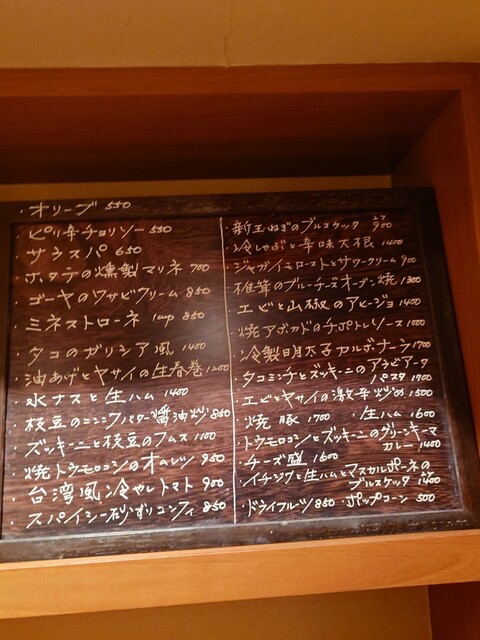 ・オリーブ 550
・ピリ辛チョリソー 550
・サラスパ 650
・ホタテの燻製マリネ 700
・ゴーヤのワサビクリーム 850
・ミネストローネ 1cup 850
・タコのガリシア風 1400
・油あげとヤサイの生春巻 1200
・水ナスと生ハム 1400
・枝豆のニンニクバター醤油炒 850
・ズッキーニと枝豆のフムス 1100
・焼トウモロコシのオムレツ 950
・台湾風冷やしトマト 900
・スパイシー砂ずりコンフィ 850
・新玉ねぎのブルスケッタ 900
・冷しゃぶと辛味大根 1400
・ジャガイモローストとサワークリーム 900
・椎茸のブルーチーズオーブン焼 1300
・エビと山椒のアヒージョ 1400
・焼アボカドのチポトレソース 1000
・冷製明太子カルボナーラ 1700
・タコミンチとズッキーニのアラビアータ
パスタ 1700
・エビとヤサイの激辛炒め 1500
・焼豚 1700 ・生ハム 1600
・トウモロコシとズッキーニのグリーンキーマ
カレー 1400
・チーズ盛 1600
・イチジクと生ハムとマスカルポーネの
ブルスケッタ 1400
・ドライフルーツ 850 ・ポップコーン 500